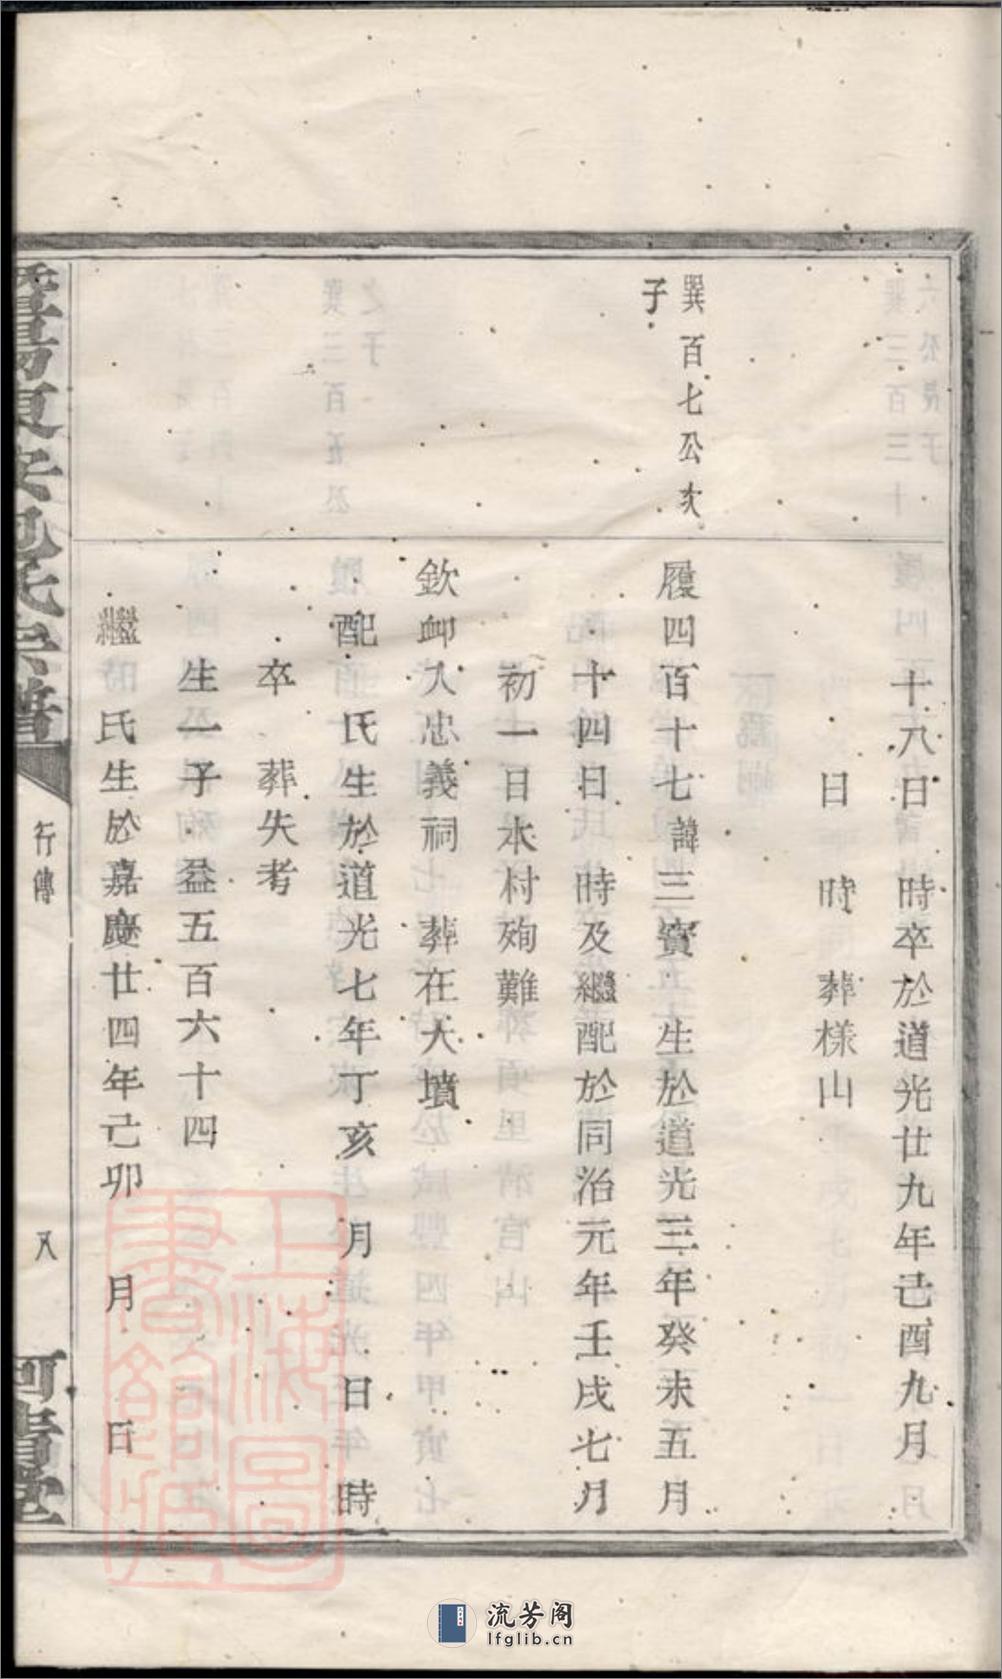 十八日　時卒於道光廿九年己酉九月
日　時　葬樣山
巽百七公次
子
履四百十七諱三寶　生於道光三年癸未五月
十四日　時及繼配於同治元年壬戌七月
初一日本村殉難
欽卹入忠義祠　葬在大墳
配　氏生於道光七年丁亥　月　日　時
卒　葬失考
生一子　益五百六十四
繼　氏生於嘉慶廿四年己卯　月　日
暨陽東安
氏宗譜
行傳
八
河清堂
上海圖
書館藏
流芳阁
lfglib.cn